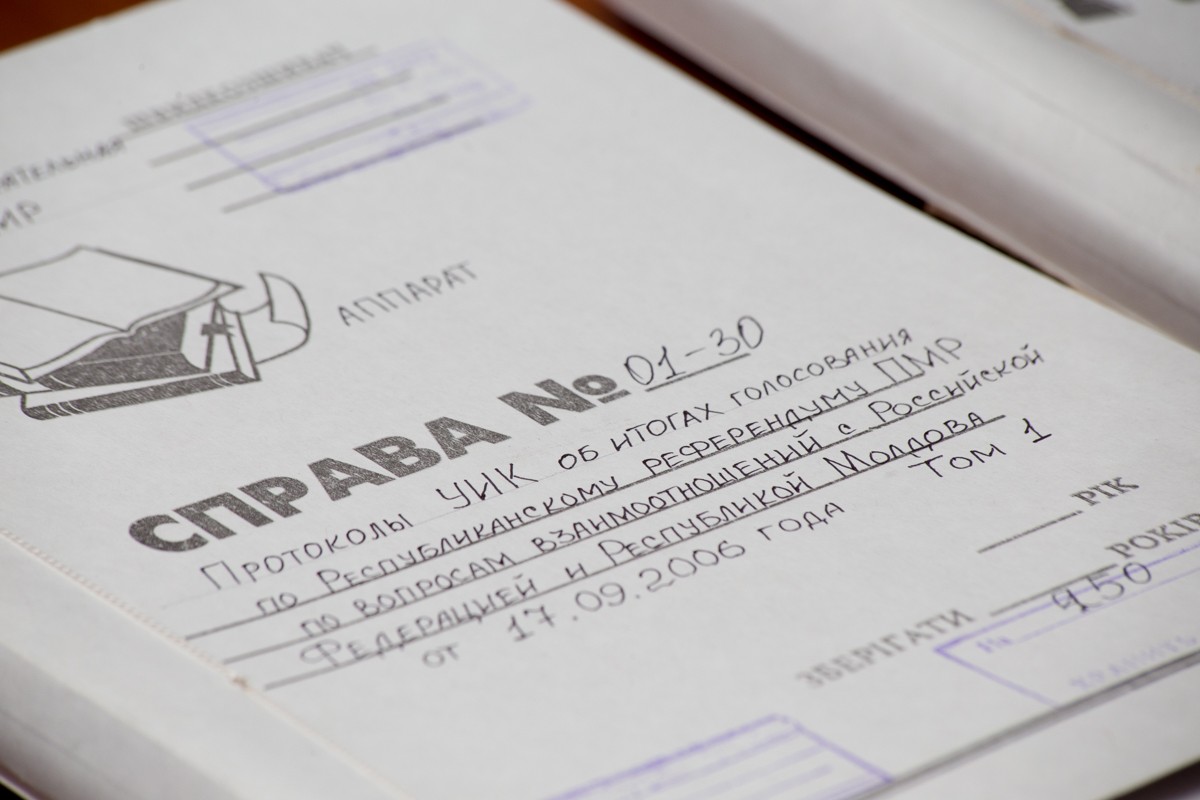 МР
АППАРАТ
СПРАВА № 01-30
Протоколы УИК об итогах голосования
по Республиканскому референдуму ПМР
по вопросам взаимоотношений с Российской
Федерацией и Республикой Молдова
от 17.09.2006 года Том 1
РІК
ЗБЕРІГАТИ РОКІВ